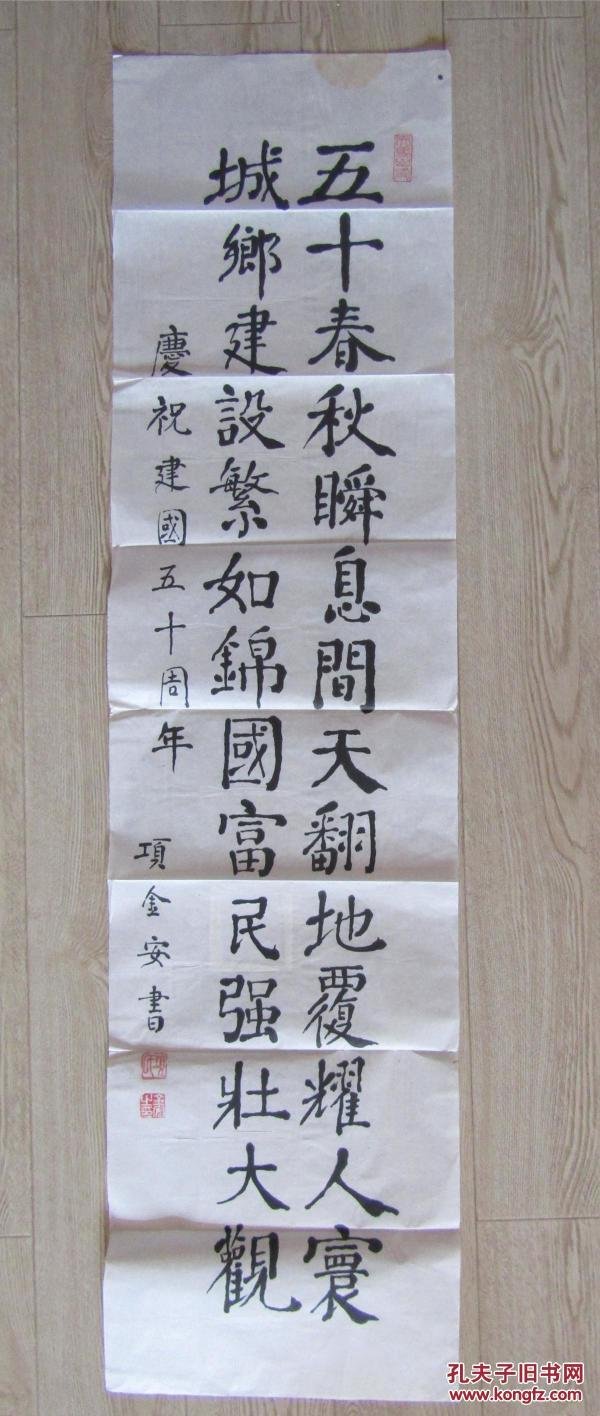 五十春秋瞬息間天翻地覆耀人寰
城鄉建設繁如錦國富民强壯大觀
慶祝建國五十周年
項金安書
孔夫子旧书网
www.kongfz.com